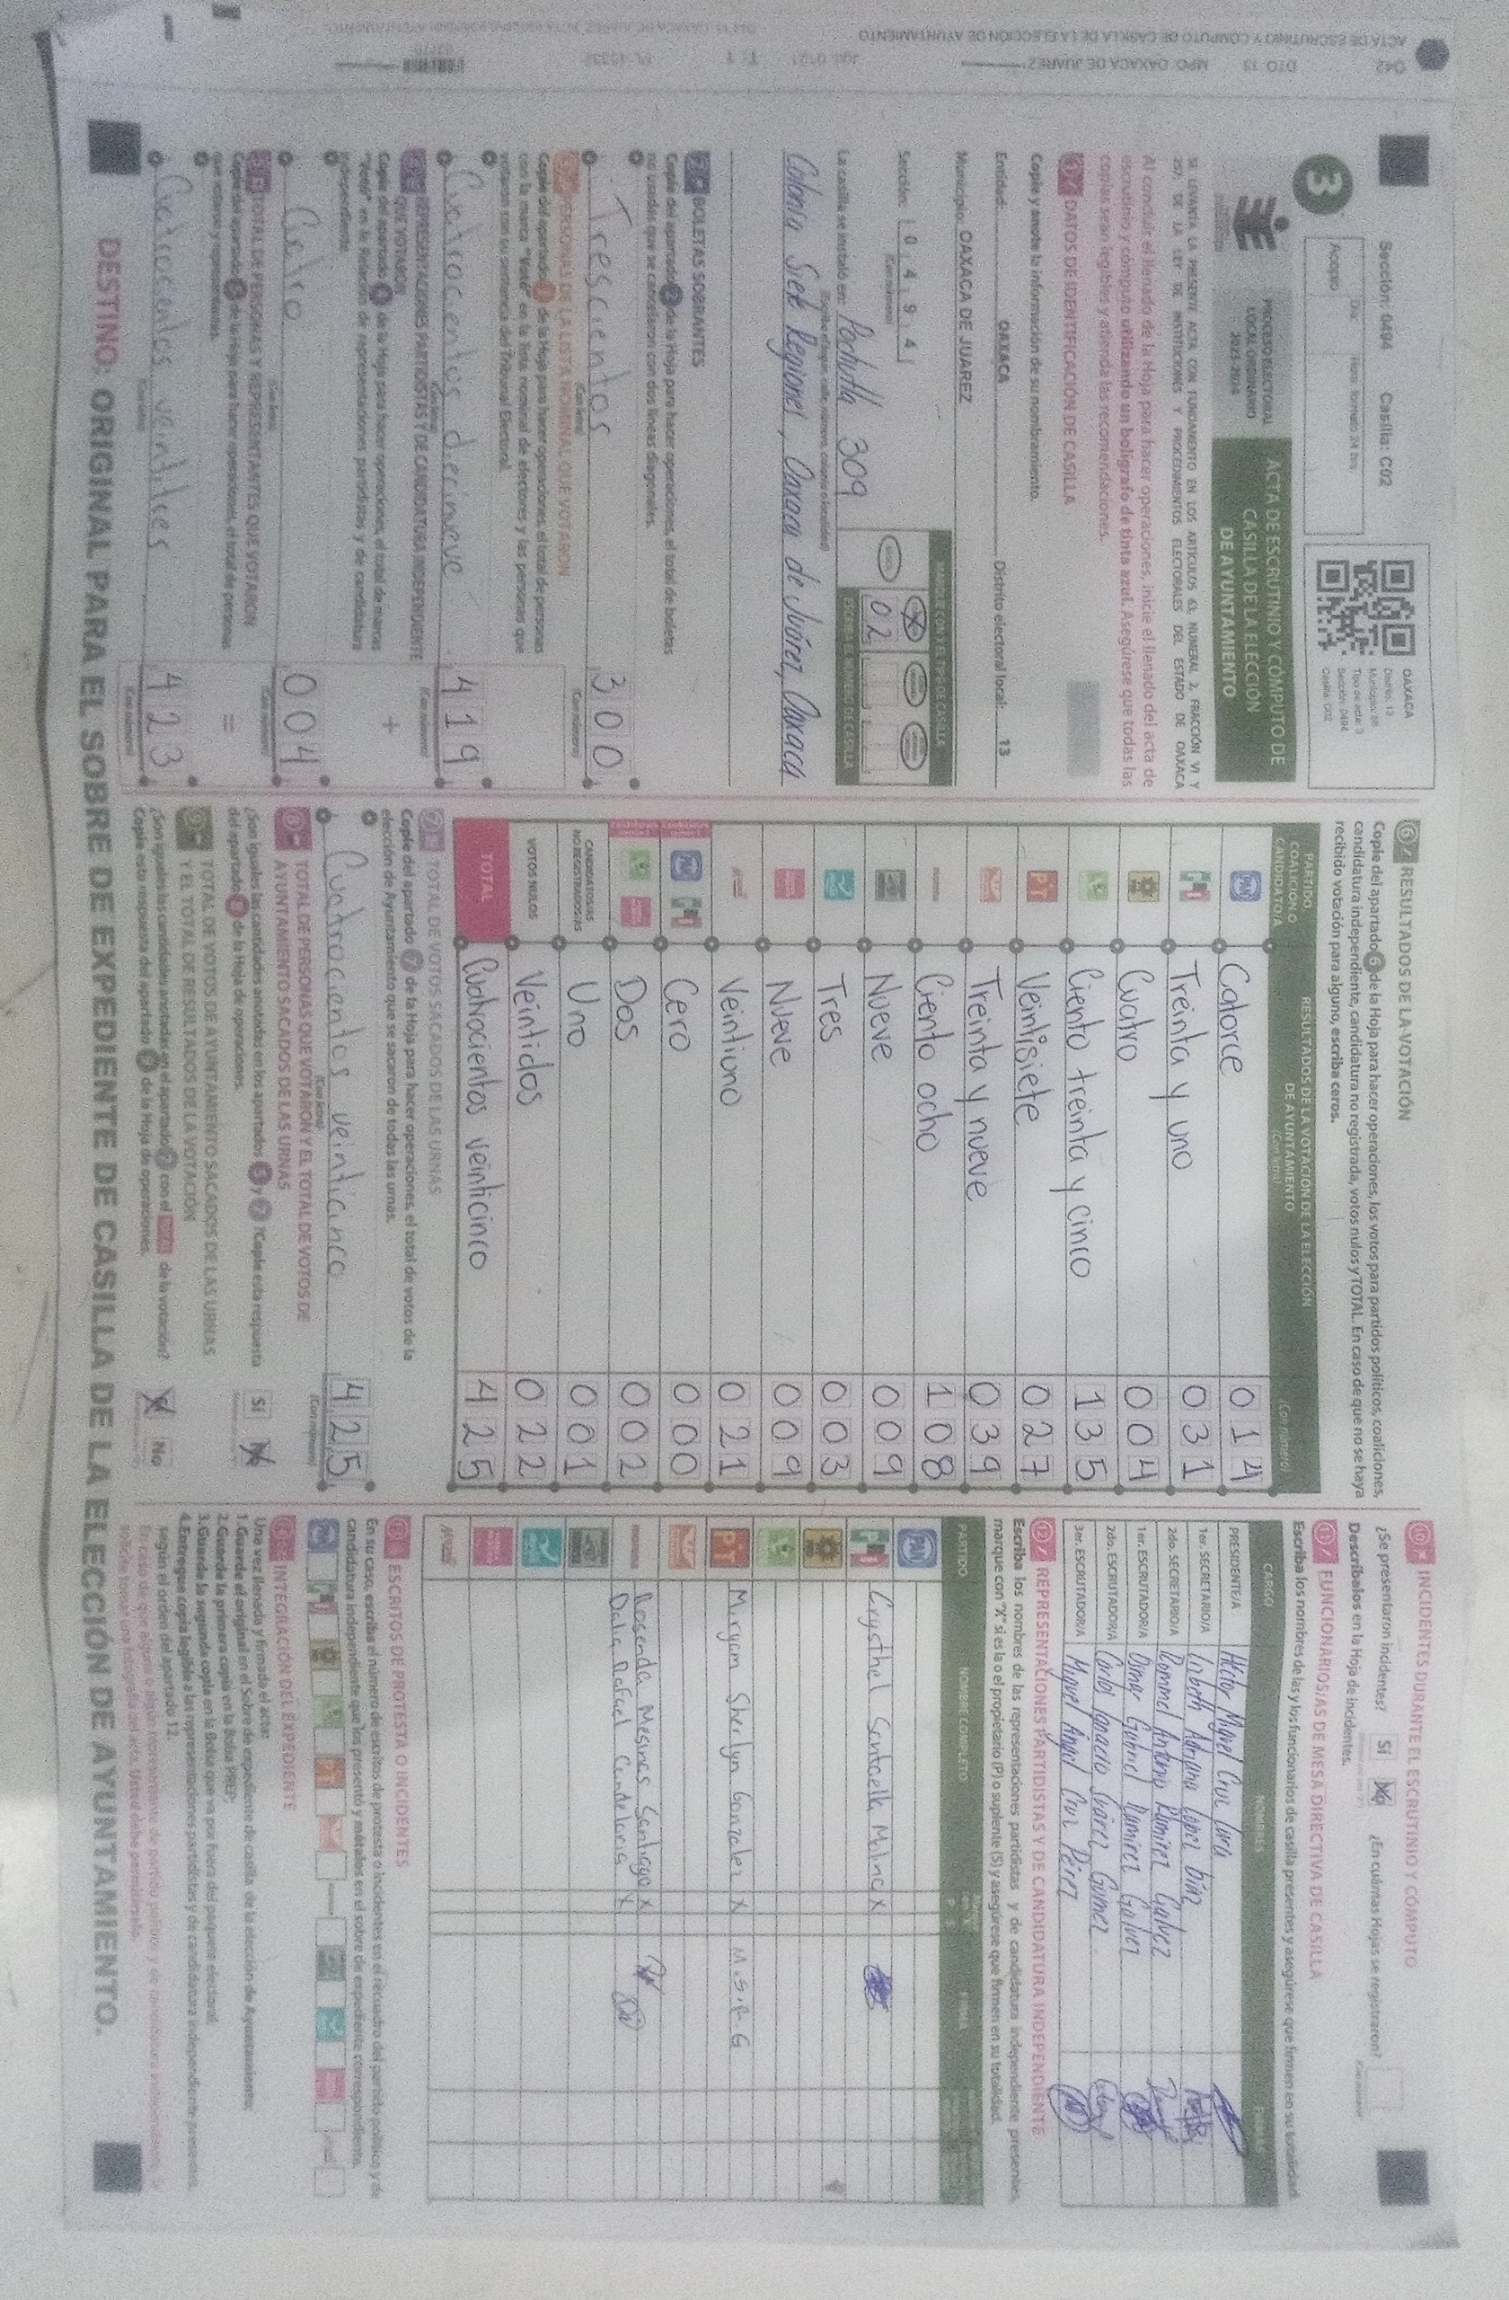 3
Sección: 0494 Casilla: C02
Acopio
OAXACA
Distrito: 13
Sección: 0494
Casilla: C02
PROCESO ELECTORAL
LOCAL ORDINARIO
2023-2024
ACTA DE ESCRUTINIO Y CÓMPUTO DE
CASILLA DE LA ELECCIÓN
DE AYUNTAMIENTO
SE LEVANTA LA PRESENTE ACTA CON FUNDAMENTO EN LOS ARTÍCULOS 63, NUMERAL 2, FRACCIÓN VI Y
257, DE LA LEY DE INSTITUCIONES Y PROCEDIMIENTOS ELECTORALES DEL ESTADO DE OAXACA
Al concluir el llenado de la Hoja para hacer operaciones, inicie el llenado del acta de
escrutinio y cómputo utilizando un bolígrafo de tinta azul. Asegúrese que todas las
copias sean legibles y atienda las recomendaciones.
DATOS DE IDENTIFICACIÓN DE CASILLA
Copie y anote la información de su nombramiento.
Entidad: OAXACA Distrito electoral local: 13
Municipio: OAXACA DE JUAREZ
Sección: 0494
MARQUE CON X EL TIPO DE CASILLA
02
ESCRIBA EL NÚMERO DE CASILLA
La casilla se instaló en: Pochutla 309
Colonia Siete Regiones, Oaxaca de Juárez, Oaxaca
BOLETAS SOBRANTES
Copie del apartado 2 de la Hoja para hacer operaciones, el total de boletas
no usadas que se cancelaron con dos líneas diagonales.
Trescientos 300
(Con letra) (Con número)
PERSONAS DE LA LISTA NOMINAL QUE VOTARON
Copie del apartado 3 de la Hoja para hacer operaciones, el total de personas
con la marca "Votó" en la lista nominal de electores y las personas que
votaron con su sentencia del Tribunal Electoral.
Cuatrocientos diecinueve 419
(Con letra) (Con número)
REPRESENTACIONES PARTIDISTAS Y DE CANDIDATURA INDEPENDIENTE
QUE VOTARON
Copie del apartado 4 de la Hoja para hacer operaciones, el total de marcas
"Votó" en la Relación de representaciones partidistas y de candidatura
independiente.
Cuatro 004
(Con letra) (Con número)
TOTAL DE PERSONAS Y REPRESENTANTES QUE VOTARON
Copie del apartado 5 de la Hoja para hacer operaciones, el total de personas
que votaron y representantes.
Cuatrocientos veintitres 423
(Con letra) (Con número)
6 RESULTADOS DE LA VOTACIÓN
Copie del apartado 6 de la Hoja para hacer operaciones, los votos para partidos políticos, coaliciones,
candidatura independiente, candidatura no registrada, votos nulos y TOTAL. En caso de que no se haya
recibido votación para alguno, escriba ceros.
PARTIDO, COALICIÓN O CANDIDATO/A
RESULTADOS DE LA VOTACIÓN DE LA ELECCIÓN
DE AYUNTAMIENTO
(Con letra) (Con número)
PAN Catorce 014
PRI Treinta y uno 031
Cuatro 004
Ciento treinta y cinco 135
PT Veintisiete 027
Treinta y nueve 039
morena Ciento ocho 108
Nueve 009
Tres 003
Nueve 009
Veintiuno 021
PAN PRI Cero 000
Dos 002
CANDIDATOS/AS NO REGISTRADOS/AS Uno 001
VOTOS NULOS Veintidos 022
TOTAL Cuatrocientos veinticinco 425
7 TOTAL DE VOTOS SACADOS DE LAS URNAS
Copie del apartado 7 de la Hoja para hacer operaciones, el total de votos de la
elección de Ayuntamiento que se sacaron de todas las urnas.
Cuatrocientos veinticinco 425
(Con letra) (Con número)
8 TOTAL DE PERSONAS QUE VOTARON Y EL TOTAL DE VOTOS DE
AYUNTAMIENTO SACADOS DE LAS URNAS
¿Son iguales las cantidades anotadas en los apartados 5 y 7? Copie esta respuesta
del apartado 8 de la Hoja de operaciones. Sí No
9 TOTAL DE VOTOS DE AYUNTAMIENTO SACADOS DE LAS URNAS
Y EL TOTAL DE RESULTADOS DE LA VOTACIÓN
¿Son iguales las cantidades anotadas en el apartado 7 con el TOTAL de la votación?
Copie esta respuesta del apartado 9 de la Hoja de operaciones. Sí No
10 INCIDENTES DURANTE EL ESCRUTINIO Y CÓMPUTO
¿Se presentaron incidentes? Sí No ¿En cuántas Hojas se registraron?
Descríbalos en la Hoja de incidentes.
11 FUNCIONARIOS/AS DE MESA DIRECTIVA DE CASILLA
Escriba los nombres de las y los funcionarios de casilla presentes y asegúrese que firmen en su totalidad.
CARGO NOMBRES FIRMAS
PRESIDENTE/A Héctor Miguel Cruz Lara
1er. SECRETARIO/A Lizbeth Adriana López Díaz
2do. SECRETARIO/A Rommel Antonio Ramírez Galvez
1er. ESCRUTADOR/A Omar Gabriel Ramirez Galvez
2do. ESCRUTADOR/A Carlos Ignacio Suárez Gomez
3er. ESCRUTADOR/A Miguel Angel Cruz Pérez
12 REPRESENTACIONES PARTIDISTAS Y DE CANDIDATURA INDEPENDIENTE
Escriba los nombres de las representaciones partidistas y de candidatura independiente presentes,
marque con "X" si es la o el propietario (P) o suplente (S) y asegúrese que firmen en su totalidad.
PARTIDO NOMBRE COMPLETO P S FIRMA
PAN
PRI Crysthel Santaella Molina X
PT Miryam Sherlyn Gonzalez X M.S.R.G
morena Rosenda Mesinas Santiago X
Dalia Rafael Candelaria X
13 ESCRITOS DE PROTESTA O INCIDENTES
En su caso, escriba el número de escritos de protesta o incidentes en el recuadro del partido político y de
candidatura independiente que los presentó y métalos en el sobre de expediente correspondiente.
INTEGRACIÓN DEL EXPEDIENTE
Una vez llenada y firmada el acta:
1. Guarde el original en el Sobre de expediente de casilla de la elección de Ayuntamiento;
2. Guarde la primera copia en la Bolsa PREP;
3. Guarde la segunda copia en la Bolsa que va por fuera del paquete electoral.
4. Entregue copia legible a las representaciones partidistas y de candidatura independiente presentes,
según el orden del apartado 12.
DESTINO: ORIGINAL PARA EL SOBRE DE EXPEDIENTE DE CASILLA DE LA ELECCIÓN DE AYUNTAMIENTO.
042 DTO 13 MPO OAXACA DE JUAREZ
ACTA DE ESCRUTINIO Y CÓMPUTO DE CASILLA DE LA ELECCIÓN DE AYUNTAMIENTO